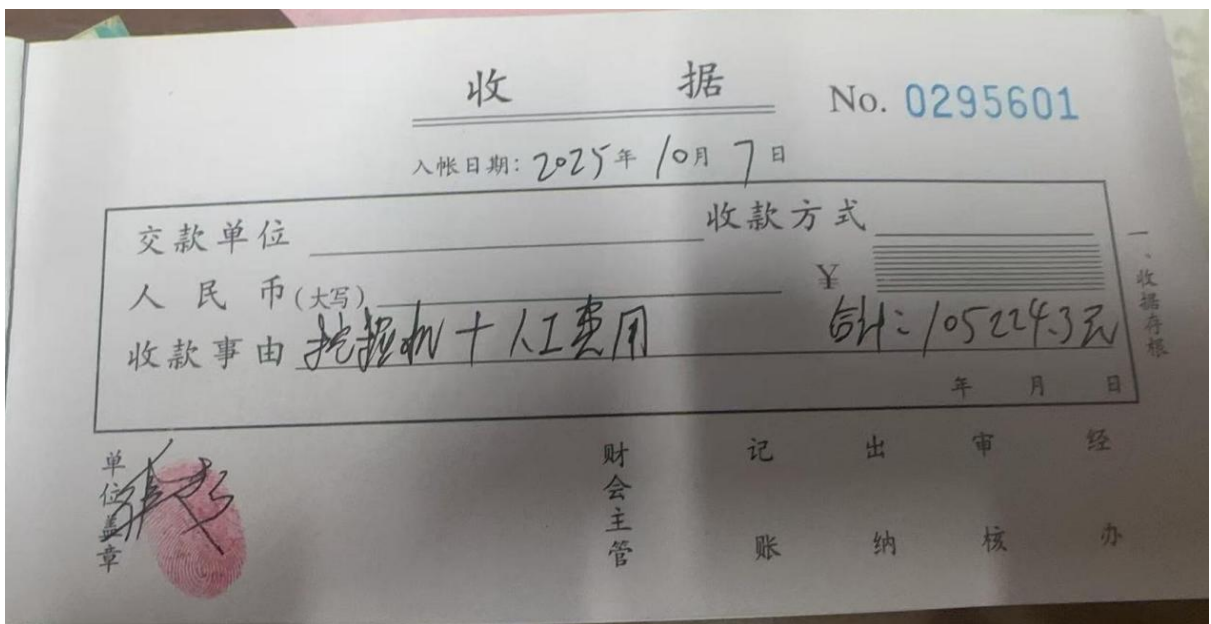 收 据 No. 0295601
入帐日期: 2025年 10月 7日
交款单位 收款方式
人民币(大写) ¥
收款事由 挖掘机+人工费用 合计:105224.3元
年 月 日
一、收据存根
单位盖章 财会主管 记账 出纳 审核 经办